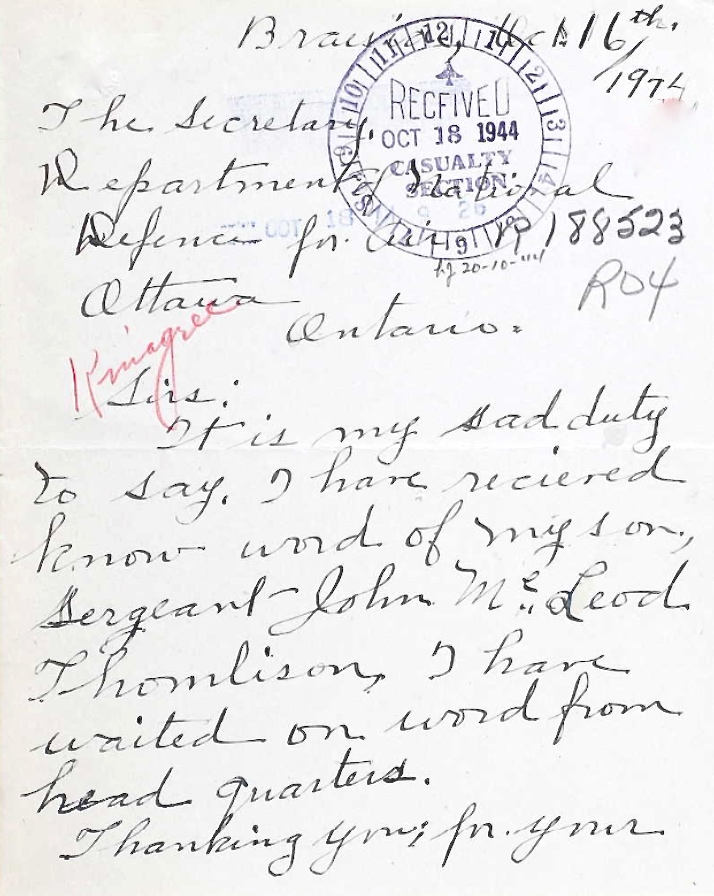 Oct 16th,
1944
The Secretary,
Department of National
Defence for Air. R188523
Ottawa
Ontario.
RECEIVED
OCT 18 1944
CASUALTY
SECTION
OCT 18
20-10-44
R04
Kinagree
Sirs:
It is my sad duty
to say, I have recieved
know word of my son,
Sergeant John Mc Leod
Thomlison, I have
waited on word from
head quarters.
Thanking you; for your